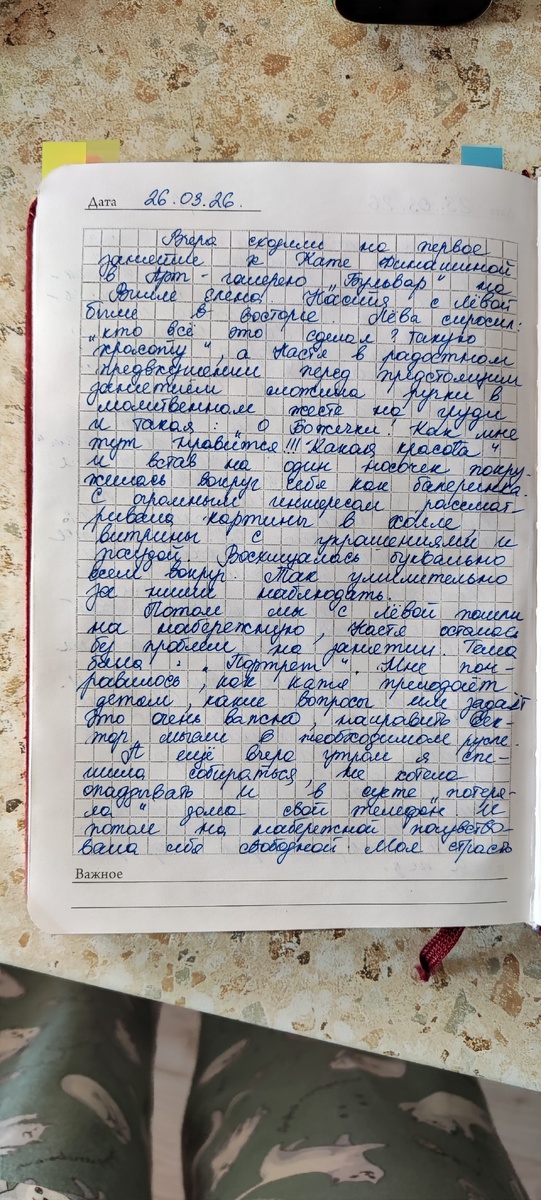 Дата 26.03.26.
Вчера сходили на первое
занятие к Кате
в Арт-галерею „Бульвар" на
Настя с Лёвой
были в восторге. Лёва спросил:
„кто всё это сделал? Такую
красоту", а Настя в радостном
предвкушении перед предстоящим
занятием сложила ручки в
молитвенном жесте на груди
и такая: „О Божечки! Как мне
тут нравится!!! Какая красота"
и встав на один носочек покру-
жилась вокруг себя как балеринка.
С огромным интересом рассмат-
ривала картины в холле
витрины с украшениями и
посудой. Восхищалась буквально
всем вокруг. Так умилительно
за ними наблюдать.
Потом мы с Лёвой пошли
на набережную, Настя осталась
без проблем на занятии. Тема
была: „Портрет". Мне пон-
равилось, как Катя преподаёт
детям, какие вопросы им задаёт
Это очень важно, направить век-
тор мысли в необходимом русле.
А ещё вчера утром я спе-
шила собираться, не хотела
опаздывать и в суете „потеря-
ла" дома свой телефон. И
потом на набережной почувство-
вала себя свободной. Моя страсть
Важное